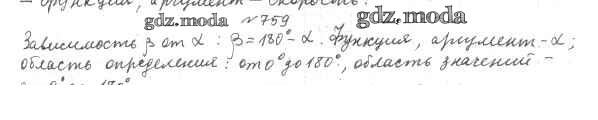 – функция, аргумент – скорость.
gdz.moda №759 gdz.moda
Зависимость β от α : β=180°-α. Функция, аргумент-α;
область определения: от 0° до 180°, область значений -